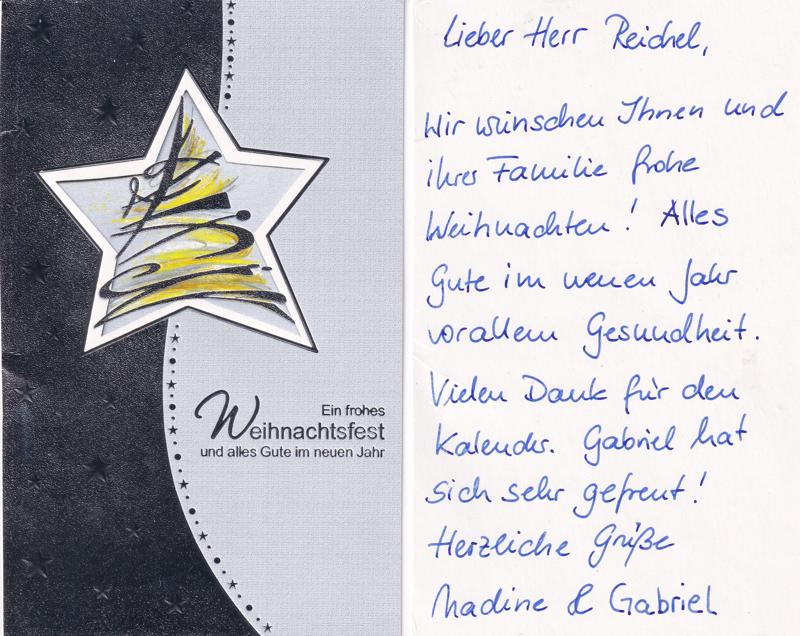 Ein frohes
Weihnachtsfest
und alles Gute im neuen Jahr
Lieber Herr Reichel,
Wir wünschen Ihnen und
ihrer Familie frohe
Weihnachten! Alles
Gute im neuen Jahr
vorallem Gesundheit.
Vielen Dank für den
Kalender. Gabriel hat
sich sehr gefreut!
Herzliche Grüße
Nadine & Gabriel